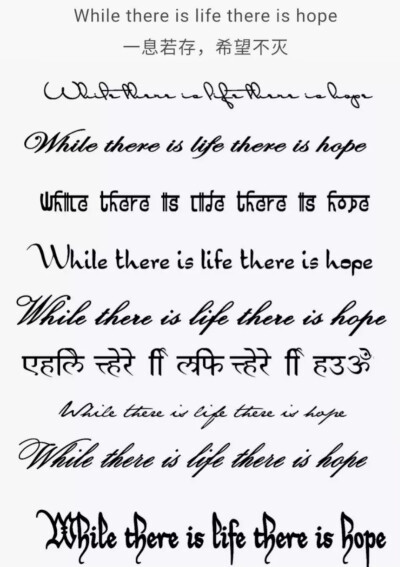 While there is life there is hope
一息若存，希望不灭
While there is life there is hope
While there is life there is hope
While there is life there is hope
While there is life there is hope
While there is life there is hope
एहलि त्हेरे ाि लफि त्हेरे ाि हउॐ
While there is life there is hope
While there is life there is hope
While there is life there is hope